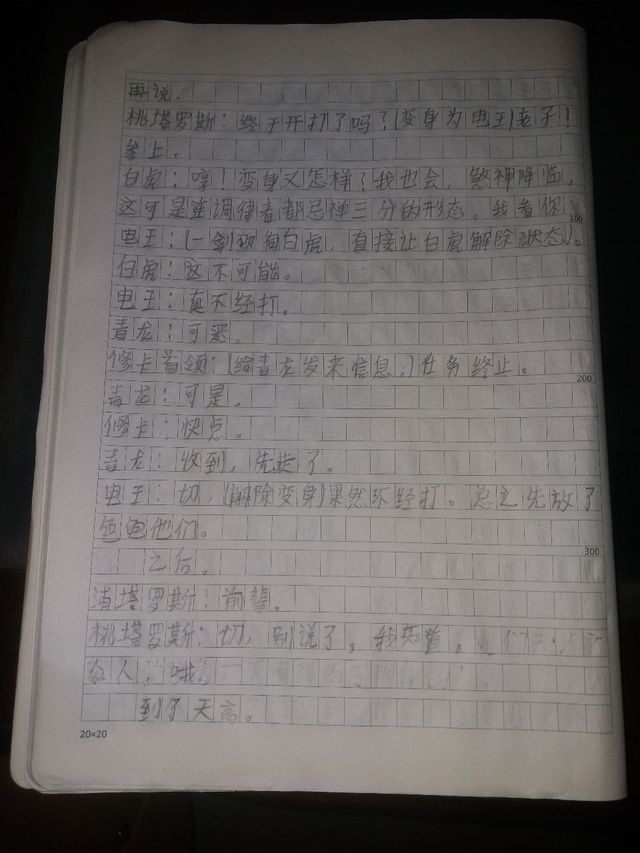 再说.
桃塔罗斯：终于开打了吗？(变身为电王)老子！
参上。
白虎：哼！变身又怎样？我也会，煞神降临，
这可是连调律者都忌禅三分的形态。我看你
100
电王：(一剑攻向白虎，直接让白虎解除状态)。
白虎：这不可能。
电王：真不经打。
青龙：可恶。
修卡首领：(给青龙发来信息。)任务终止。
200
青龙：可是。
修卡：快点。
青龙：收到，先撤了。
电王：切，(解除变身)果然不经打。总之先放了
他们。
300
之后。
浦塔罗斯：前辈。
桃塔罗斯：切，别说了。我
众人：哦。
到了天高。
20×20